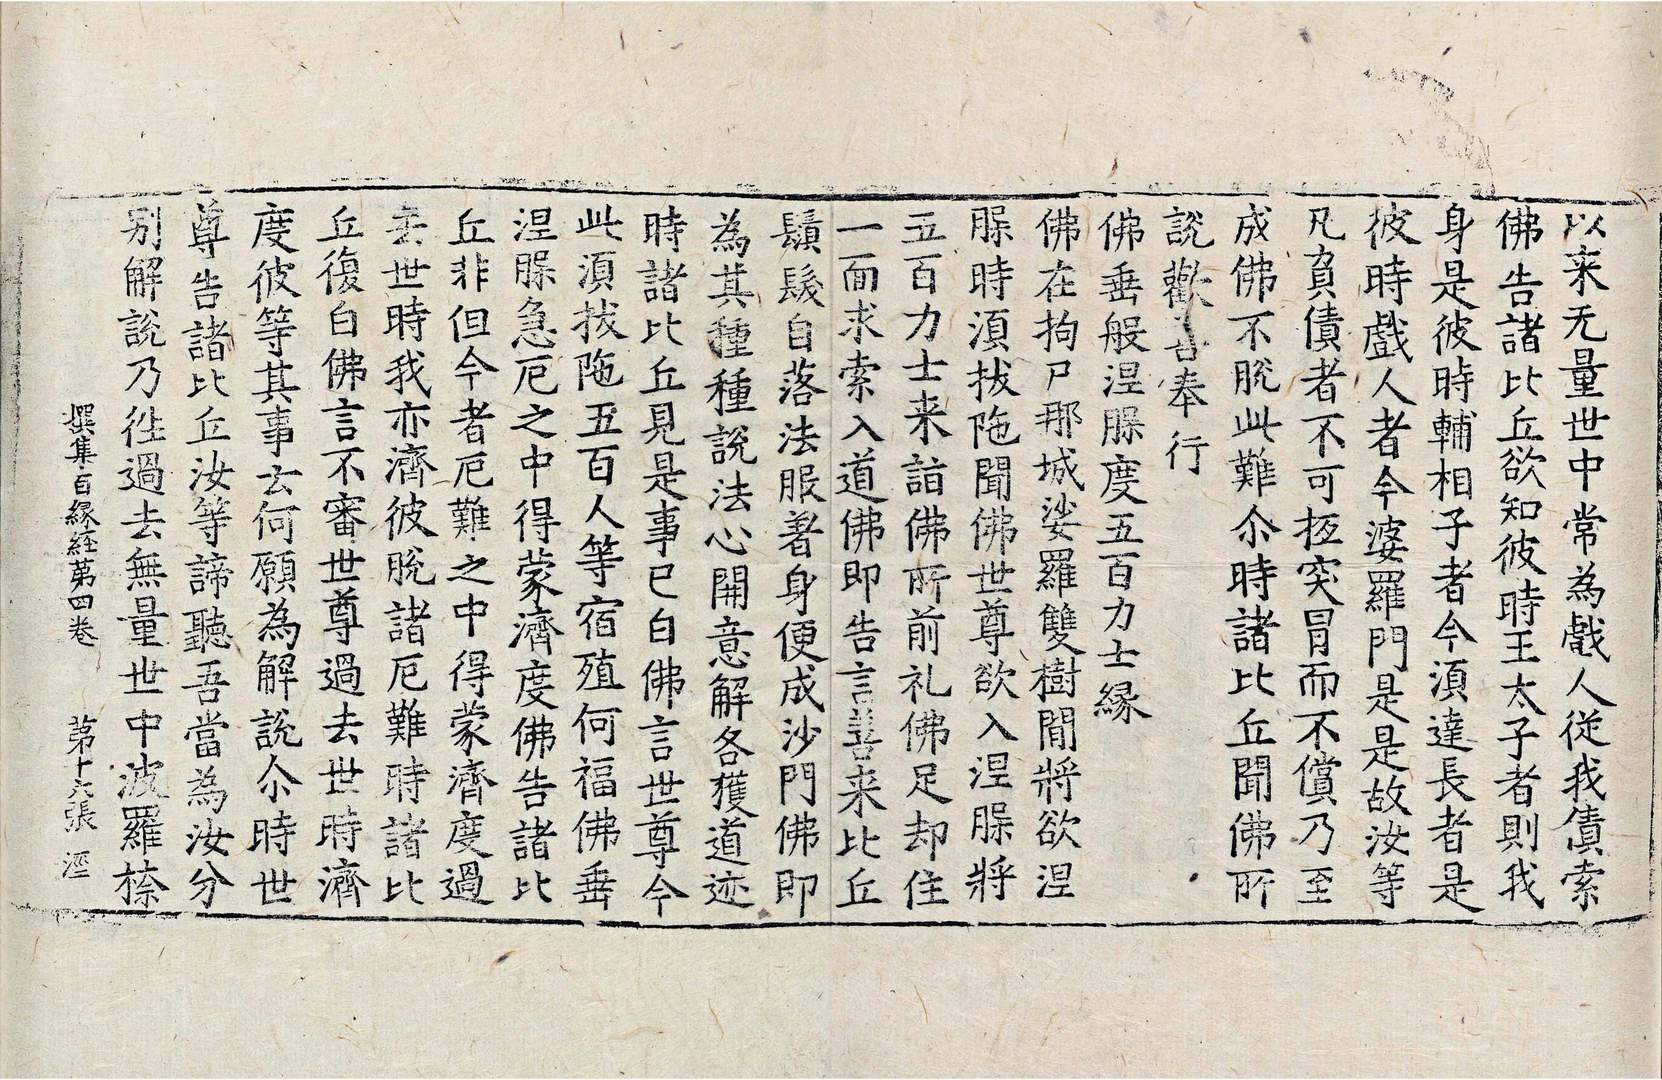 以来无量世中常為戲人従我債索
佛告諸比丘欲知彼時王太子者則我
身是彼時輔相子者今湏達長者是
彼時戲人者今婆羅門是是故汝等
凡負債者不可抵突冐而不償乃至
成佛不脫此難尒時諸比丘聞佛所
說歡喜奉行
佛垂般涅脲度五百力士縁
佛在拘尸那城娑羅雙樹間將欲涅
脲時湏拔陁聞佛世尊欲入涅脲將
五百力士来詣佛所前礼佛足却住
一面求索入道佛即告言善来比丘
鬚髮自落法服著身便成沙門佛即
為其種種說法心開意解各獲道迹
時諸比丘見是事已白佛言世尊今
此湏拔陁五百人等宿殖何福佛垂
涅脲急厄之中得蒙濟度佛告諸比
丘非但今者厄難之中得蒙濟度過
去世時我亦濟彼脫諸厄難時諸比
丘復白佛言不審世尊過去世時濟
度彼等其事云何願為解說尒時世
尊告諸比丘汝等諦聽吾當為汝分
别解說乃徃過去無量世中波羅㮈
撰集百縁経苐四卷 苐十六張 涇